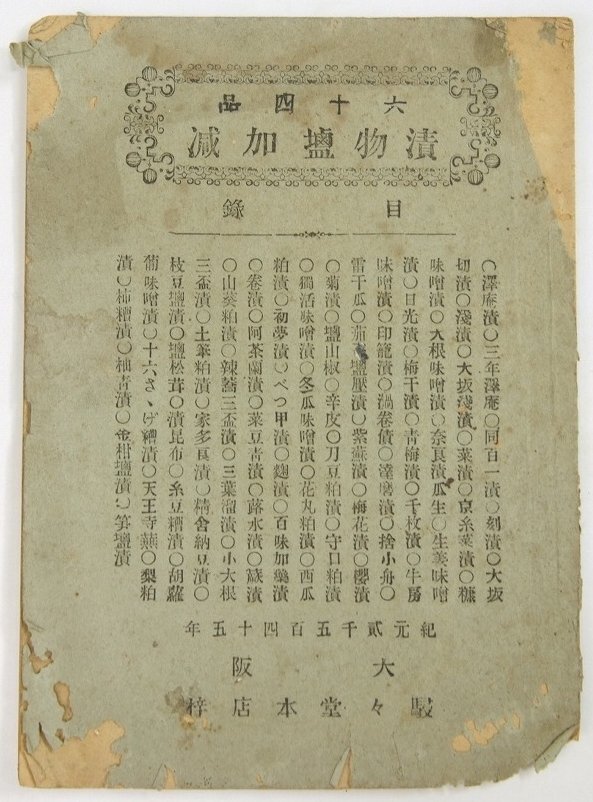 六十四品
漬物鹽加減
目錄
○澤庵漬○三年澤庵○同百一漬○刻漬○大坂
切漬○淺漬○大坂淺漬○菜漬○京糸菜漬○糠
味噌漬○大根味噌漬○奈良漬瓜生○生姜味噌
漬○日光漬○梅干漬○青梅漬○千枚漬○牛房
味噌漬○印籠漬○渦卷漬○達磨漬○捨小舟○
雷干瓜○茄子鹽壓漬○紫蘇漬○梅花漬○櫻漬
○菊漬○鹽山椒○辛皮○刀豆粕漬○守口粕漬
○獨活味噌漬○冬瓜味噌漬○花丸粕漬○西瓜
粕漬○初夢漬○べつ甲漬○麹漬○百味加薬漬
○卷漬○阿茶蘭漬○菜豆青漬○蕗水漬○蕨漬
○山葵粕漬○辣薤三盃漬○三葉溜漬○小大根
三盃漬○土筆粕漬○家多良漬○精舍納豆漬○
枝豆鹽漬○鹽松茸○漬昆布○糸豆糟漬○胡蘿
蔔味噌漬○十六さゝげ糟漬○天王寺蕪○梨粕
漬○柿糟漬○柚青漬○金柑鹽漬○笋鹽漬
紀元貳千五百四十五年
大阪
駸々堂本店梓